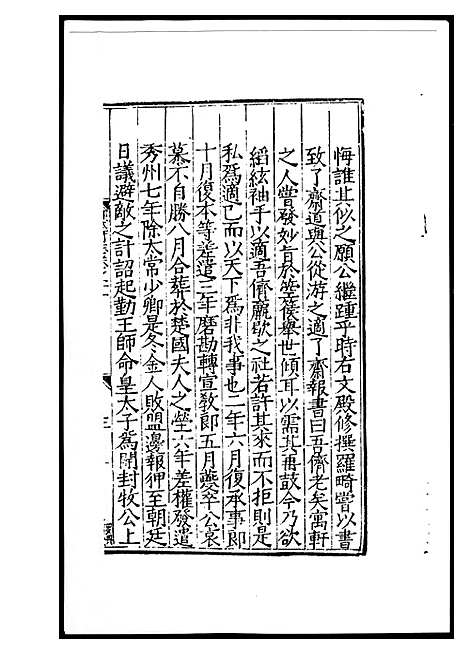 悔誰其似之願公繼踵乎時右文殿修撰羅畸嘗以書
致了齋道與公從游之適了齋報書曰吾儕老矣寓軒
之人嘗發妙旨於箜篌舉世傾耳以需其再鼓今乃欲
縚絃袖手以適吾儕嚴歇之社若許其求而不拒則是
私爲適己而以天下爲非我事也二年六月復承事郎
十月復本等差遣三年磨勘轉宣敎郎五月夔卒公哀
慕不自勝八月合葬於楚國夫人之塋六年差權發遣
秀州七年除太常少卿是冬金人敗盟邊報狎至朝廷
日議避敵之計詔起勤王師命皇太子爲開封牧公上